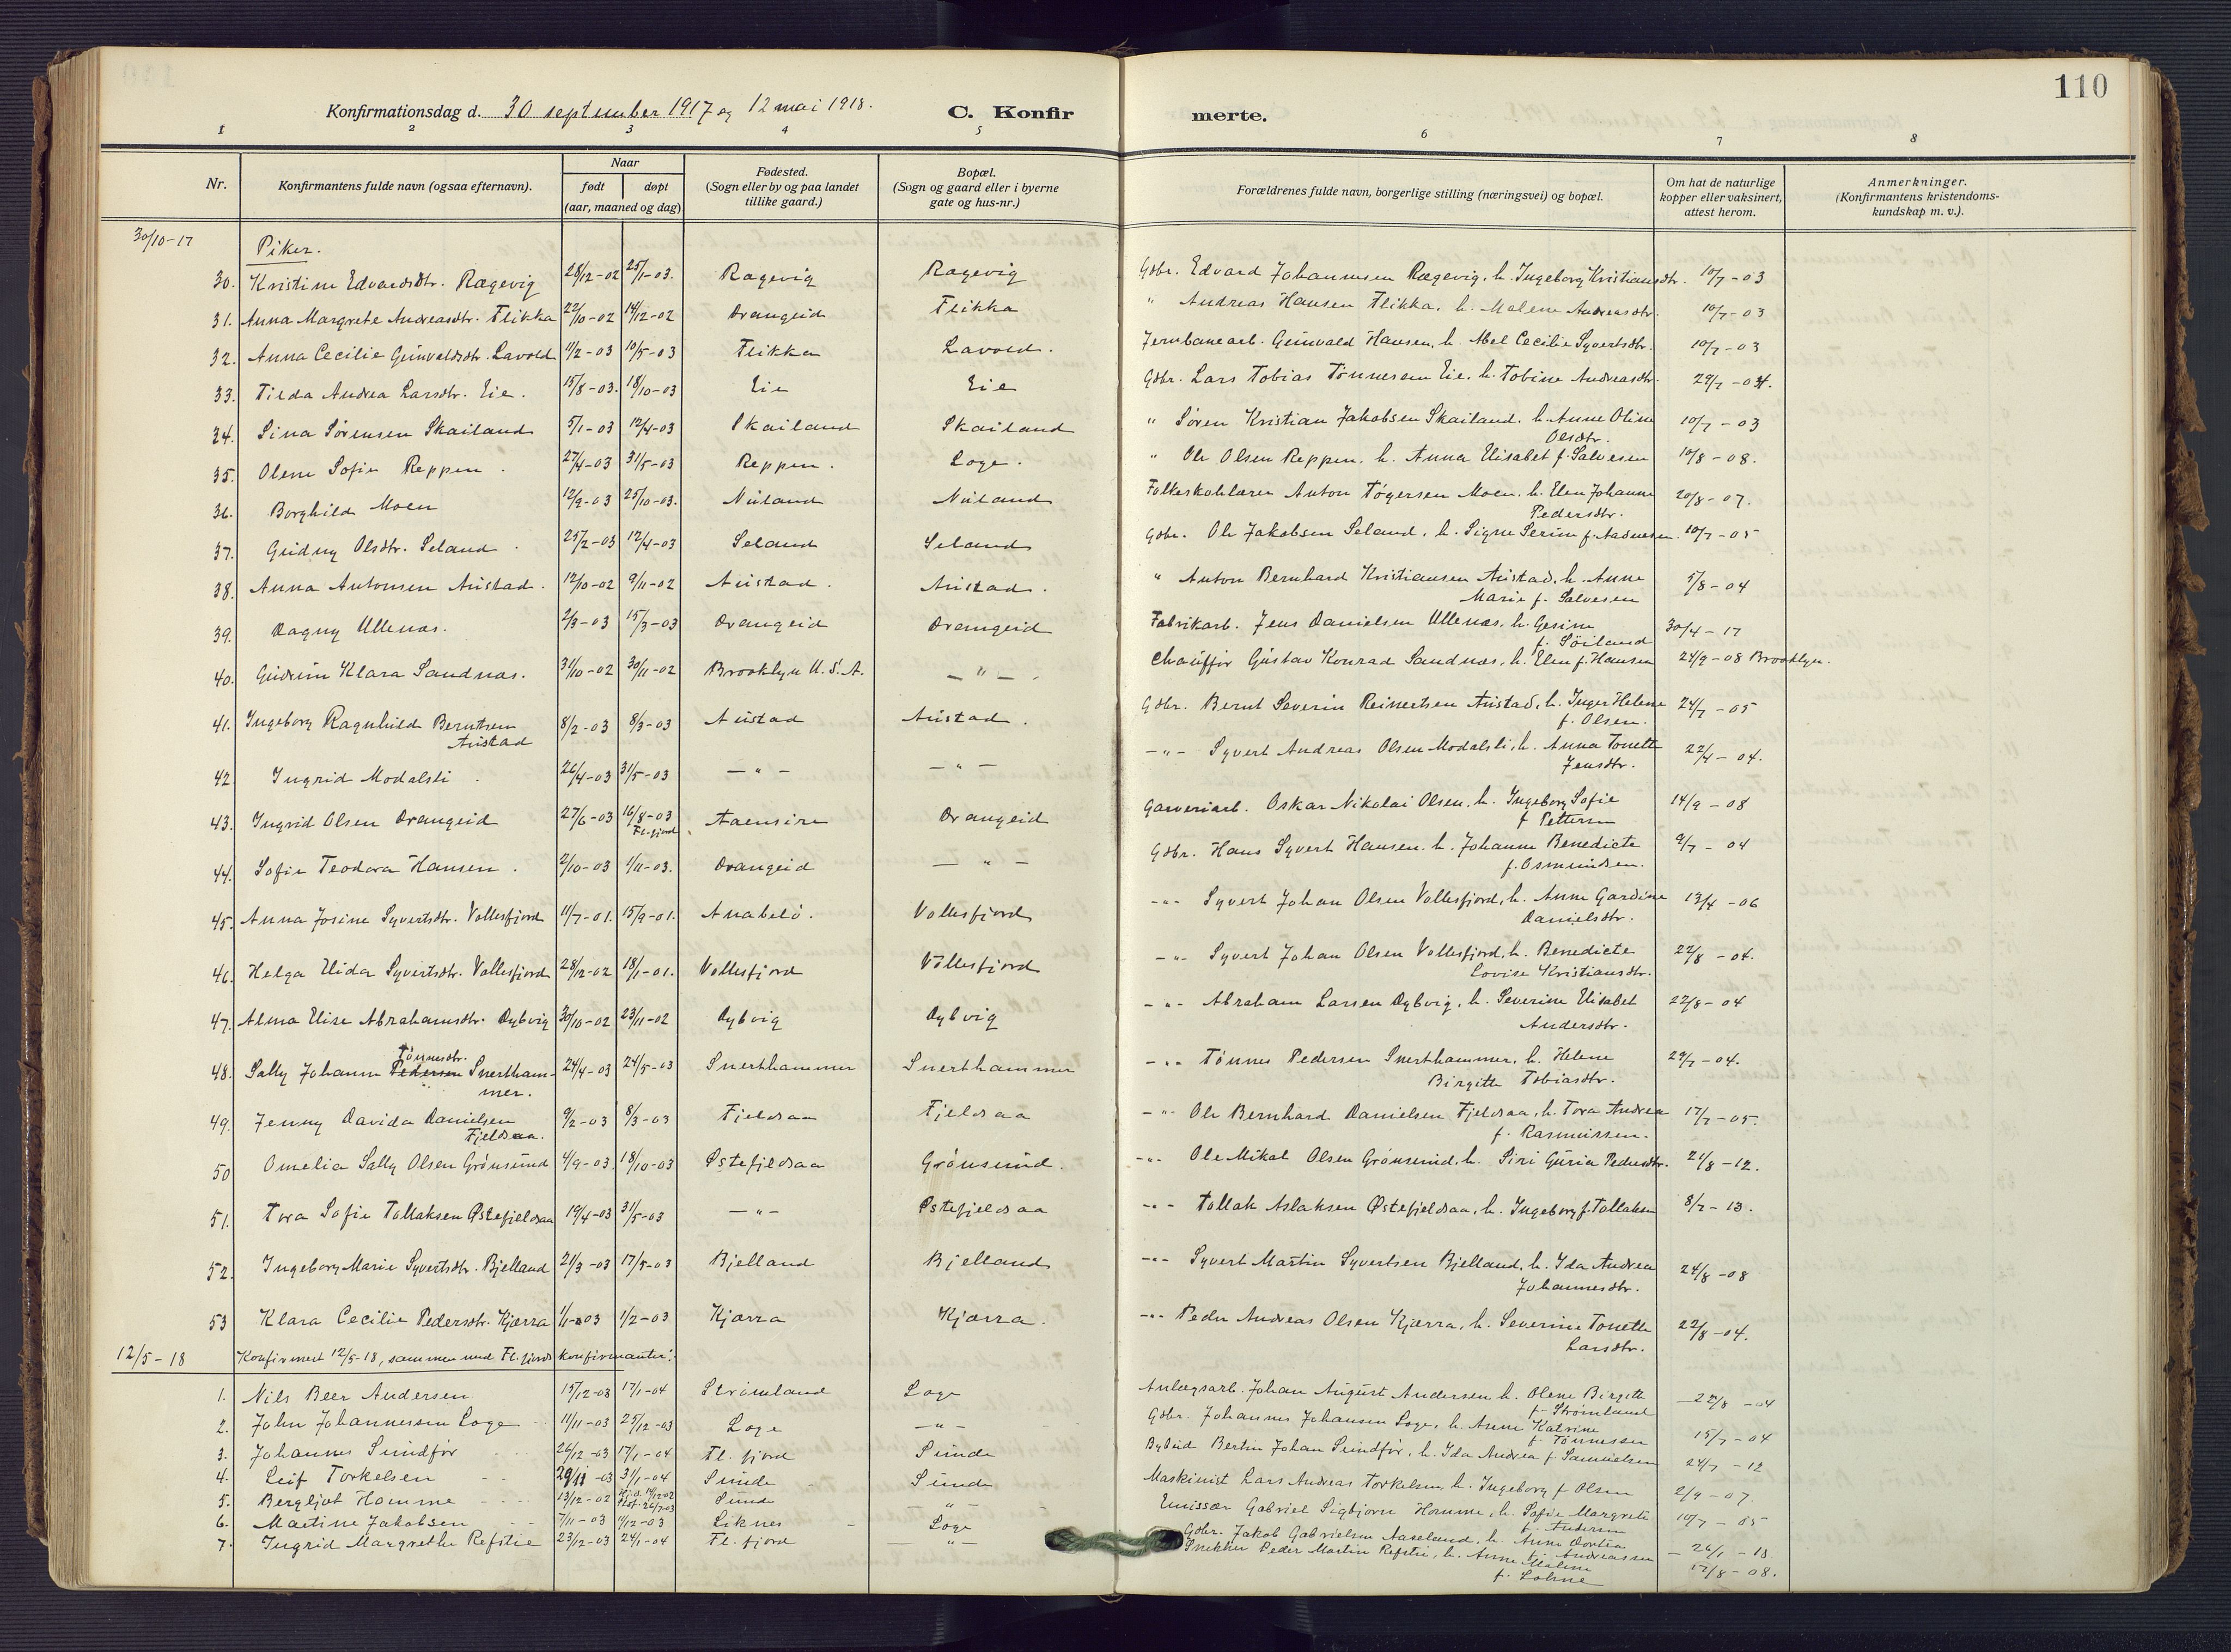 110
Konfirmationsdag d. 30 september 1917 og 12 mai 1918.
C. Konfir
merte.
1 2 3 4 5 6 7 8
Nr.
Konfirmantens fulde navn (ogsaa efternavn).
Naar
født døpt
(aar, maaned og dag)
Fødested.
(Sogn eller by og paa landet
tillike gaard.)
Bopæl.
(Sogn og gaard eller i byerne
gate og hus-nr.)
Forældrenes fulde navn, borgerlige stilling (næringsvei) og bopæl.
Om hat de naturlige
kopper eller vaksinert,
attest herom.
Anmerkninger.
(Konfirmantens kristendoms-
kundskap m. v.).
30/10-17
Piker.
30. Kristine Edvardsdtr. Rægevig 28/12-02 25/1-03. Rægevig Rægevig Gdbr. Edvard Johannesen Rægevig, h. Ingeborg Kristiansdtr. 10/7-03
31. Anna Margrete Andreasdtr. Flikka 22/10-02 14/12-02 Drangeid Flikka " Andreas Hansen Flikka, h. Malene Andreasdtr. 10/7-03
32. Anna Cecilie Grünvaldsdtr. Lavold 11/2-03 10/5-03 Flikka Lavold. Jernbanearb. Grünvald Hansen, h. Abel Cecilie Syvertsdtr. 10/7-03
33. Tilda Andrea Larsdtr. Eie. 15/8-03. 18/10-03 Eie Eie Gdbr. Lars Tobias Tønnesen Eie, h. Tobine Andreasdtr. 29/7-04.
34. Sina Sørensen Skailand 5/1-03 12/4-03 Skailand Skailand " Søren Kristian Jakobsen Skailand, h. Anne Oline 10/7-03
Olsdtr.
35. Olene Sofie Reppen. 27/4-03 31/5-03 Reppen. Loge. " Ole Olsen Reppen, h. Anna Elisabet f. Salvesen 10/8-08.
36. Borghild Moen 12/9-03 25/10-03. Nuland Nuland Folkeskolelærer Anton Tøgersen Moen, h. Elen Johanne 20/8-07.
Pedersdtr.
37. Gudny Olsdtr. Seland. 25/2-03 12/4-03 Seland Seland Gdbr. Ole Jakobsen Seland, h. Signe Serine f. Aadnesen. 10/7-05
38. Anna Antonsen Austad. 12/10-02 9/11-02 Austad. Austad. " Anton Bernhard Kristiansen Austad, h. Anne 5/8-04
Marie f. Salvesen
39. Dagny Ullenæs. 2/3-03 15/3-03 Drangeid Drangeid Fabrikarb. Jens Danielsen Ullenæs, h. Gesine 30/4-17
f. Søiland
40. Gudrun Klara Sandnæs. 31/10-02 30/11-02 Brooklyn U.S.A. - " - Chauffør Gustav Konrad Sandnæs, h. Elen f. Hansen 24/9-08 Brooklyn.
41. Ingeborg Ragnhild Berntsen 8/2-03 8/3-03 Austad Austad. Gdbr. Bernt Severin Reinertsen Austad, h. Inger Helene 24/7-05
Austad f. Olsen.
42 Ingrid Modalsli. 26/4-03 31/5-03 - " - - " - - " - Syvert Andreas Olsen Modalsli, h. Anna Tonette 22/4-04.
Jensdtr.
43. Ingrid Olsen Drangeid 27/6-03 16/8-03 Aaensire Drangeid Garveriarb. Oskar Nikolai Olsen, h. Ingeborg Sofie 14/9-08
Fl. fjord f. Pettersen
44. Sofie Teodora Hansen. 2/10-03 1/11-03. Drangeid - " - Gdbr. Hans Syvert Hansen, h. Johanne Benedicte 9/7-04
f. Osmundsen.
45. Anna Josine Syvertsdtr. Vollesfjord 11/7-01. 15/9-01. Anabelö. Vollesfjord - " - Syvert Johan Olsen Vollesfjord, h. Anne Gardine 13/4-06
Danielsdtr.
46. Helga Elida Syvertsdtr. Vollesfjord 28/12-02 18/1-01. Vollesfjord Vollesfjord - " - Syvert Johan Olsen Vollesfjord, h. Benedicte 22/8-04.
Lovise Kristiansdtr.
47. Alma Elise Abrahamsdtr. Dybvig 30/10-02 23/11-02 Dybvig Dybvig - " - Abraham Larsen Dybvig, h. Severine Elisabet 22/8-04
Andersdtr.
Tønnesdtr.
48. Sally Johanne Pedersen Snertham- 24/4-03 24/5-03 Snerthammer Snerthammer - " - Tønnes Pedersen Snerthammer, h. Helene 29/7-04.
mer. Birgitte Tobiasdtr.
49. Jenny Davida Danielsen 9/2-03 8/3-03 Fjeldsaa Fjeldsaa - " - Ole Bernhard Danielsen Fjeldsaa, h. Tora Andrea 17/7-05.
Fjeldsaa. f. Rasmussen.
50 Omelia Sally Olsen Grönsund 4/9-03 18/10-03 Østefjeldsaa Grönsund. - " - Ole Mikal Olsen Grönsund, h. Siri Guria Pedersdtr. 21/8-12.
51. Tora Sofie Tollaksen Østefjeldsaa 19/4-03 31/5-03 - " - Østefjeldsaa - " - Tollak Aslaksen Østefjeldsaa, h. Ingeborg f. Tollaksen 8/7-13.
52. Ingeborg Marie Syvertsdtr. Bjelland 21/3-03 17/5-03 Bjelland Bjelland - " - Syvert Martin Syvertsen Bjelland, h. Ida Andrea 24/8-08
Johannesdtr.
53 Klara Cecilie Pedersdtr. Kjærra 1/1-03 1/2-03 Kjærra Kjærra. - " - Peder Andreas Olsen Kjærra, h. Severine Tonette 22/8-04.
Larsdtr.
12/5-18 Konfirmert 12/5-18, sammen med Fl. fjords konfirmanter:
1. Nils Beer Andersen 15/12-03 17/1-04 Strömland Loge Anlægsarb. Johan August Andersen h. Olene Birgitte 22/8-04
f. Strömland
2. John Johannessen Loge 11/11-03 25/12-03 Loge - " - Gdbr. Johannes Johansen Loge, h. Anne Katrine 15/7-04
f. Tönnessen
3. Johannes Sundför 26/12-03 17/1-04 Fl. fjord Sunde Bybud Bertin Johan Sundför, h. Ida Andrea f. Samuelsen 24/7-12
4. Leif Torkelsen 29/11-03 31/1-04 Sunde Sunde Maskinist Lars Andreas Torkelsen, h. Ingeborg f. Olsen 2/9-07.
5. Bergljot Homme 13/12-02 Sunde - " - Emissær Gabriel Sigbjørn Homme, h. Sofie Margrete 10/7-05
f. Andersen
6. Martine Jakobsen 7/11-03 11/12-03 Liknes Loge Gdbr. Jakob Gabrielsen Aaselund, h. Anne Dortea 26/1-18
f. Andreassen
7. Ingrid Margrethe Refstie 23/12-03 24/1-04 Fl. fjord - " - Snekker Peder Martin Refstie, h. Anne Malene 12/8-08.
f. Lohne